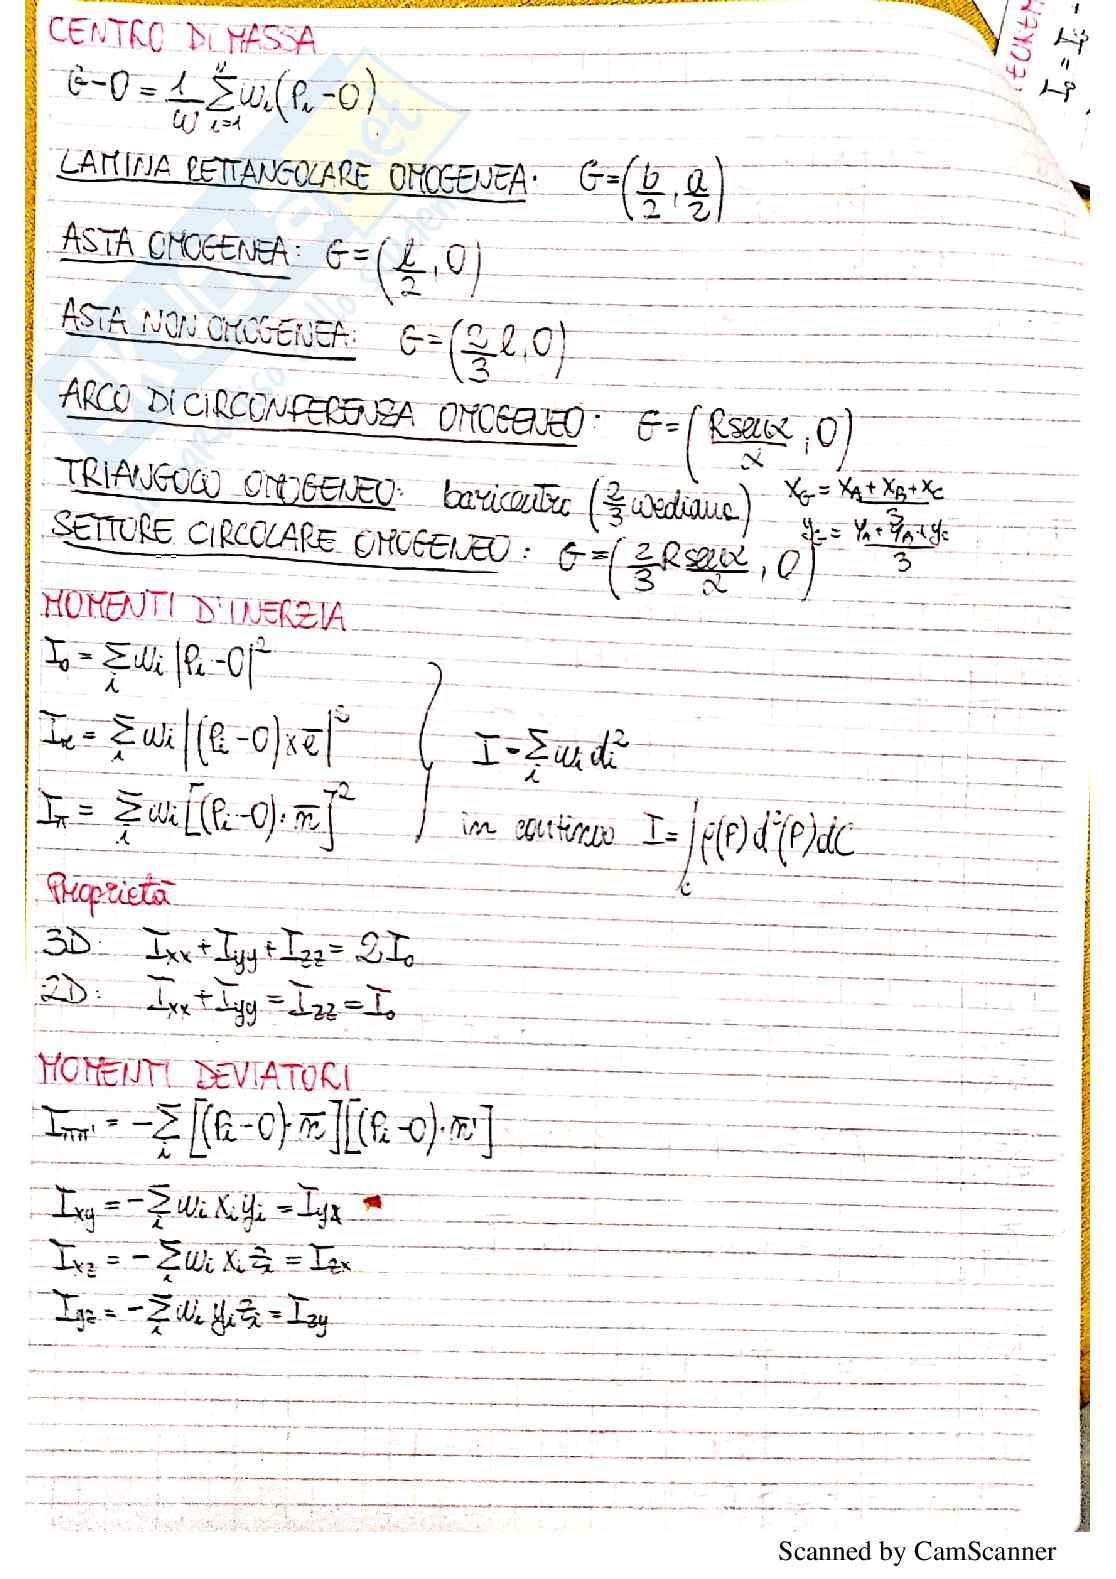 CENTRO DI MASSA
G-O = 1/m Σ_{i=1}^{n} mi (Pi - O)
LAMINA RETTANGOLARE OMOGENEA: G = (b/2, a/2)
ASTA OMOGENEA: G = (l/2, 0)
ASTA NON OMOGENEA: G = (2/3 l, 0)
ARCO DI CIRCONFERENZA OMOGENEO: G = (R senα/α, 0)
TRIANGOLO OMOGENEO: baricentro (2/3 mediana) xG = (xA + xB + xC)/3
yG = (yA + yB + yC)/3
SETTORE CIRCOLARE OMOGENEO: G = (2/3 R senα/α, 0)
MOMENTI D'INERZIA
Io = Σ_i mi |Pi - O|²
Ir = Σ_i mi |(Pi - O) × e̅|²
I = Σ_i mi di²
Iπ = Σ_i mi [(Pi - O) · n̅]²
in continuo I = ∫_C ρ(P) d²(P) dC
Proprietà
3D: Ixx + Iyy + Izz = 2 Io
2D: Ixx + Iyy = Izz = Io
MOMENTI DEVIATORI
Iππ' = - Σ_i [(Pi - O) · n̅][(Pi - O) · n̅']
Ixy = - Σ_i mi xi yi = Iyx
Ixz = - Σ_i mi xi zi = Izx
Iyz = - Σ_i mi yi zi = Izy
Scanned by CamScanner